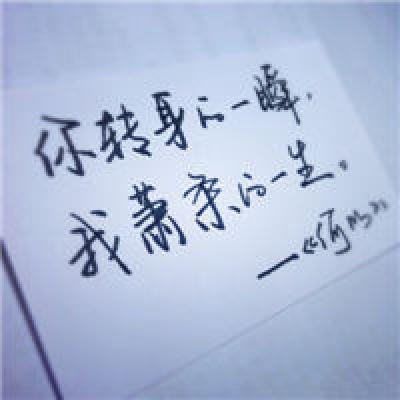 你转身的一瞬，
我萧条的一生。
—《何》